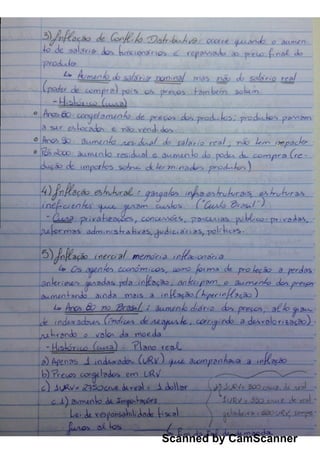 3) Inflação de Conflito Distributivo: ocorre quando o aumen-
to de salário dos funcionários é repassado ao preço final do
produto
↳ Aumento do salário nominal mas não do salário real
(poder de compra) pois os preços também sobem
- Histórico (cura)
Anos 80: congelamento de preços dos produtos; produtos passam
a ser estocados e não vendidos
Anos 90: aumento residual do salário real, não tem impacto
Pós 2000: aumento residual e aumento do poder de compra (re-
dução de impostos sobre determinados produtos)
4) Inflação estrutural: gargalos infraestruturais, estruturas
ineficientes que geram custos ("Custo Brasil")
- Cura: privatizações, concessões, parcerias público-privadas,
reformas administrativas, judiciárias, políticas.
5) Inflação inercial: memória inflacionária
↳ Os agentes econômicos, como forma de proteção a perdas
anteriores geradas pela inflação, antecipam o aumento dos preços
aumentando ainda mais a inflação (hiperinflação)
↳ Anos 80 no Brasil: aumento diário dos preços, alto grau
de indexadores (índices de reajuste, corrigindo a desvalorização)
retirando o valor da moeda
- Histórico (cura): Plano real
a) Apenas 1 indexador (URV) que acompanhava a inflação
b) Preços congelados em URV
c) 1URV = 2750 cruz. de real = 1 dollar
c.1) aumento de Importações
Lei de responsabilidade fiscal
juros altos
Scanned by CamScanner